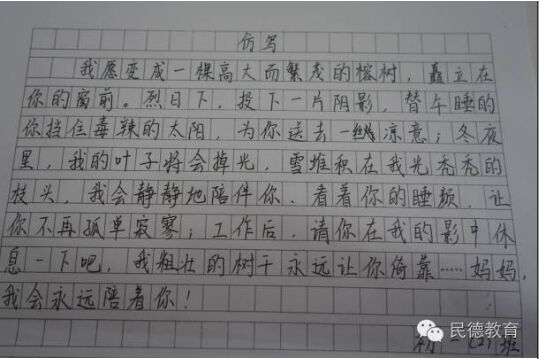 仿写
我愿变成一棵高大而繁茂的榕树，矗立在
你的窗前。烈日下，投下一片阴影，替午睡的
你挡住毒辣的太阳，为你送去一丝凉意；冬夜
里，我的叶子将会掉光，雪堆积在我光秃秃的
枝头，我会静静地陪伴你，看着你的睡颜，让
你不再孤单寂寥；工作后，请你在我的影中休
息一下吧，我粗壮的树干永远让你倚靠……妈妈，
我会永远陪着你！
初一(2)班
民德教育